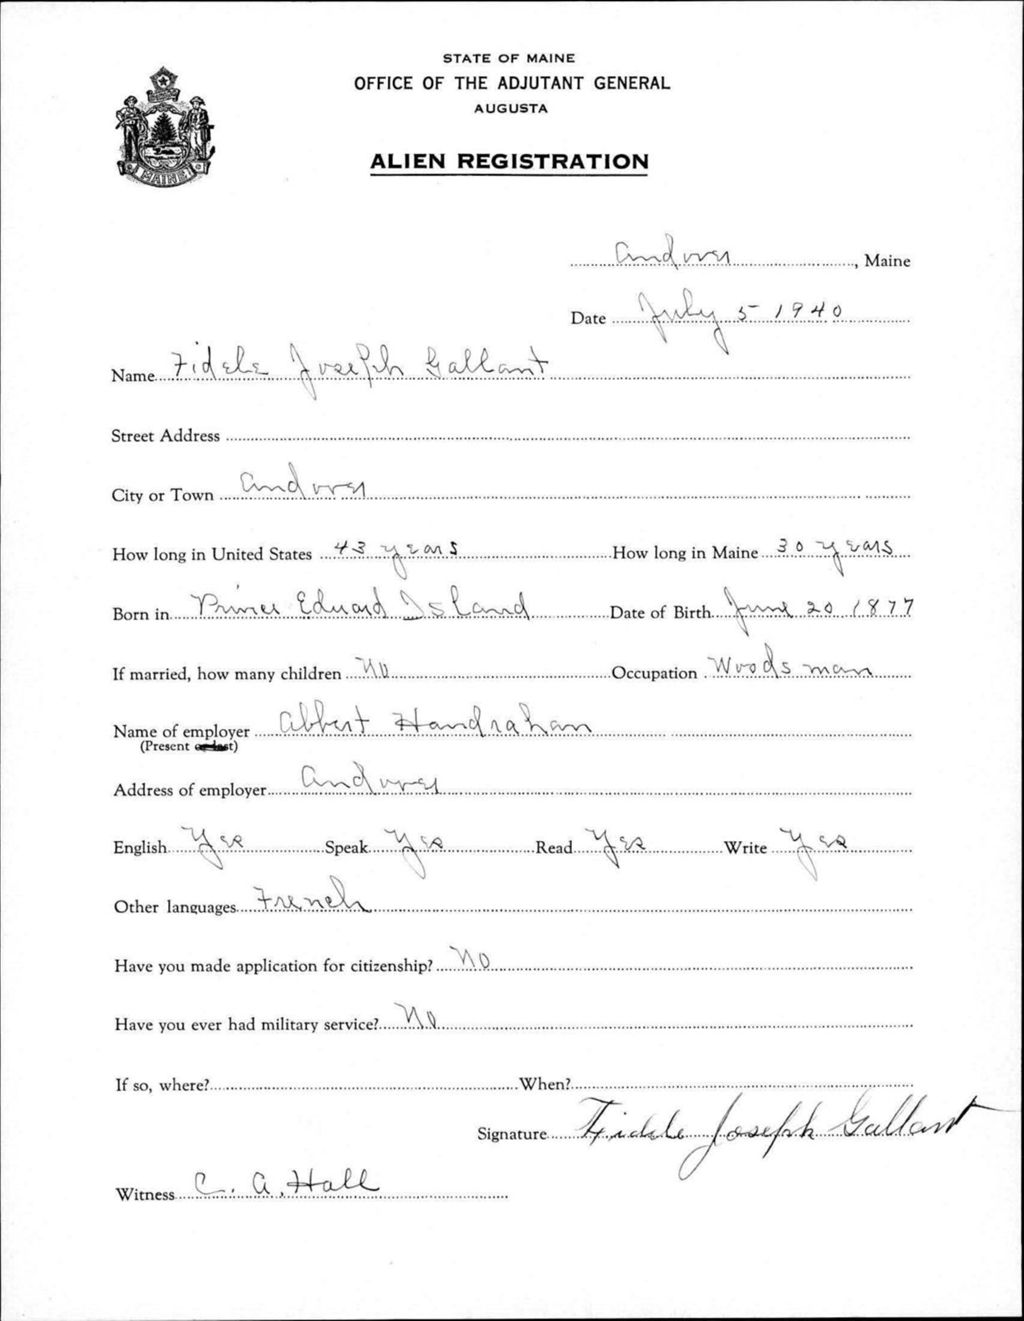 STATE OF MAINE
OFFICE OF THE ADJUTANT GENERAL
AUGUSTA
ALIEN REGISTRATION
MAINE
Andover, Maine
Date July 5 1940
Name Fidele Joseph Gallant
Street Address
City or Town Andover
How long in United States 43 years How long in Maine 30 years
Born in Prince Edward Island Date of Birth June 20 1877
If married, how many children No Occupation Woodsman
Name of employer Albert Handrahan
(Present or last)
Address of employer Andover
English Yes Speak Yes Read Yes Write Yes
Other languages French
Have you made application for citizenship? No
Have you ever had military service? No
If so, where? When?
Signature Fidele Joseph Gallant
Witness C. A. Hall